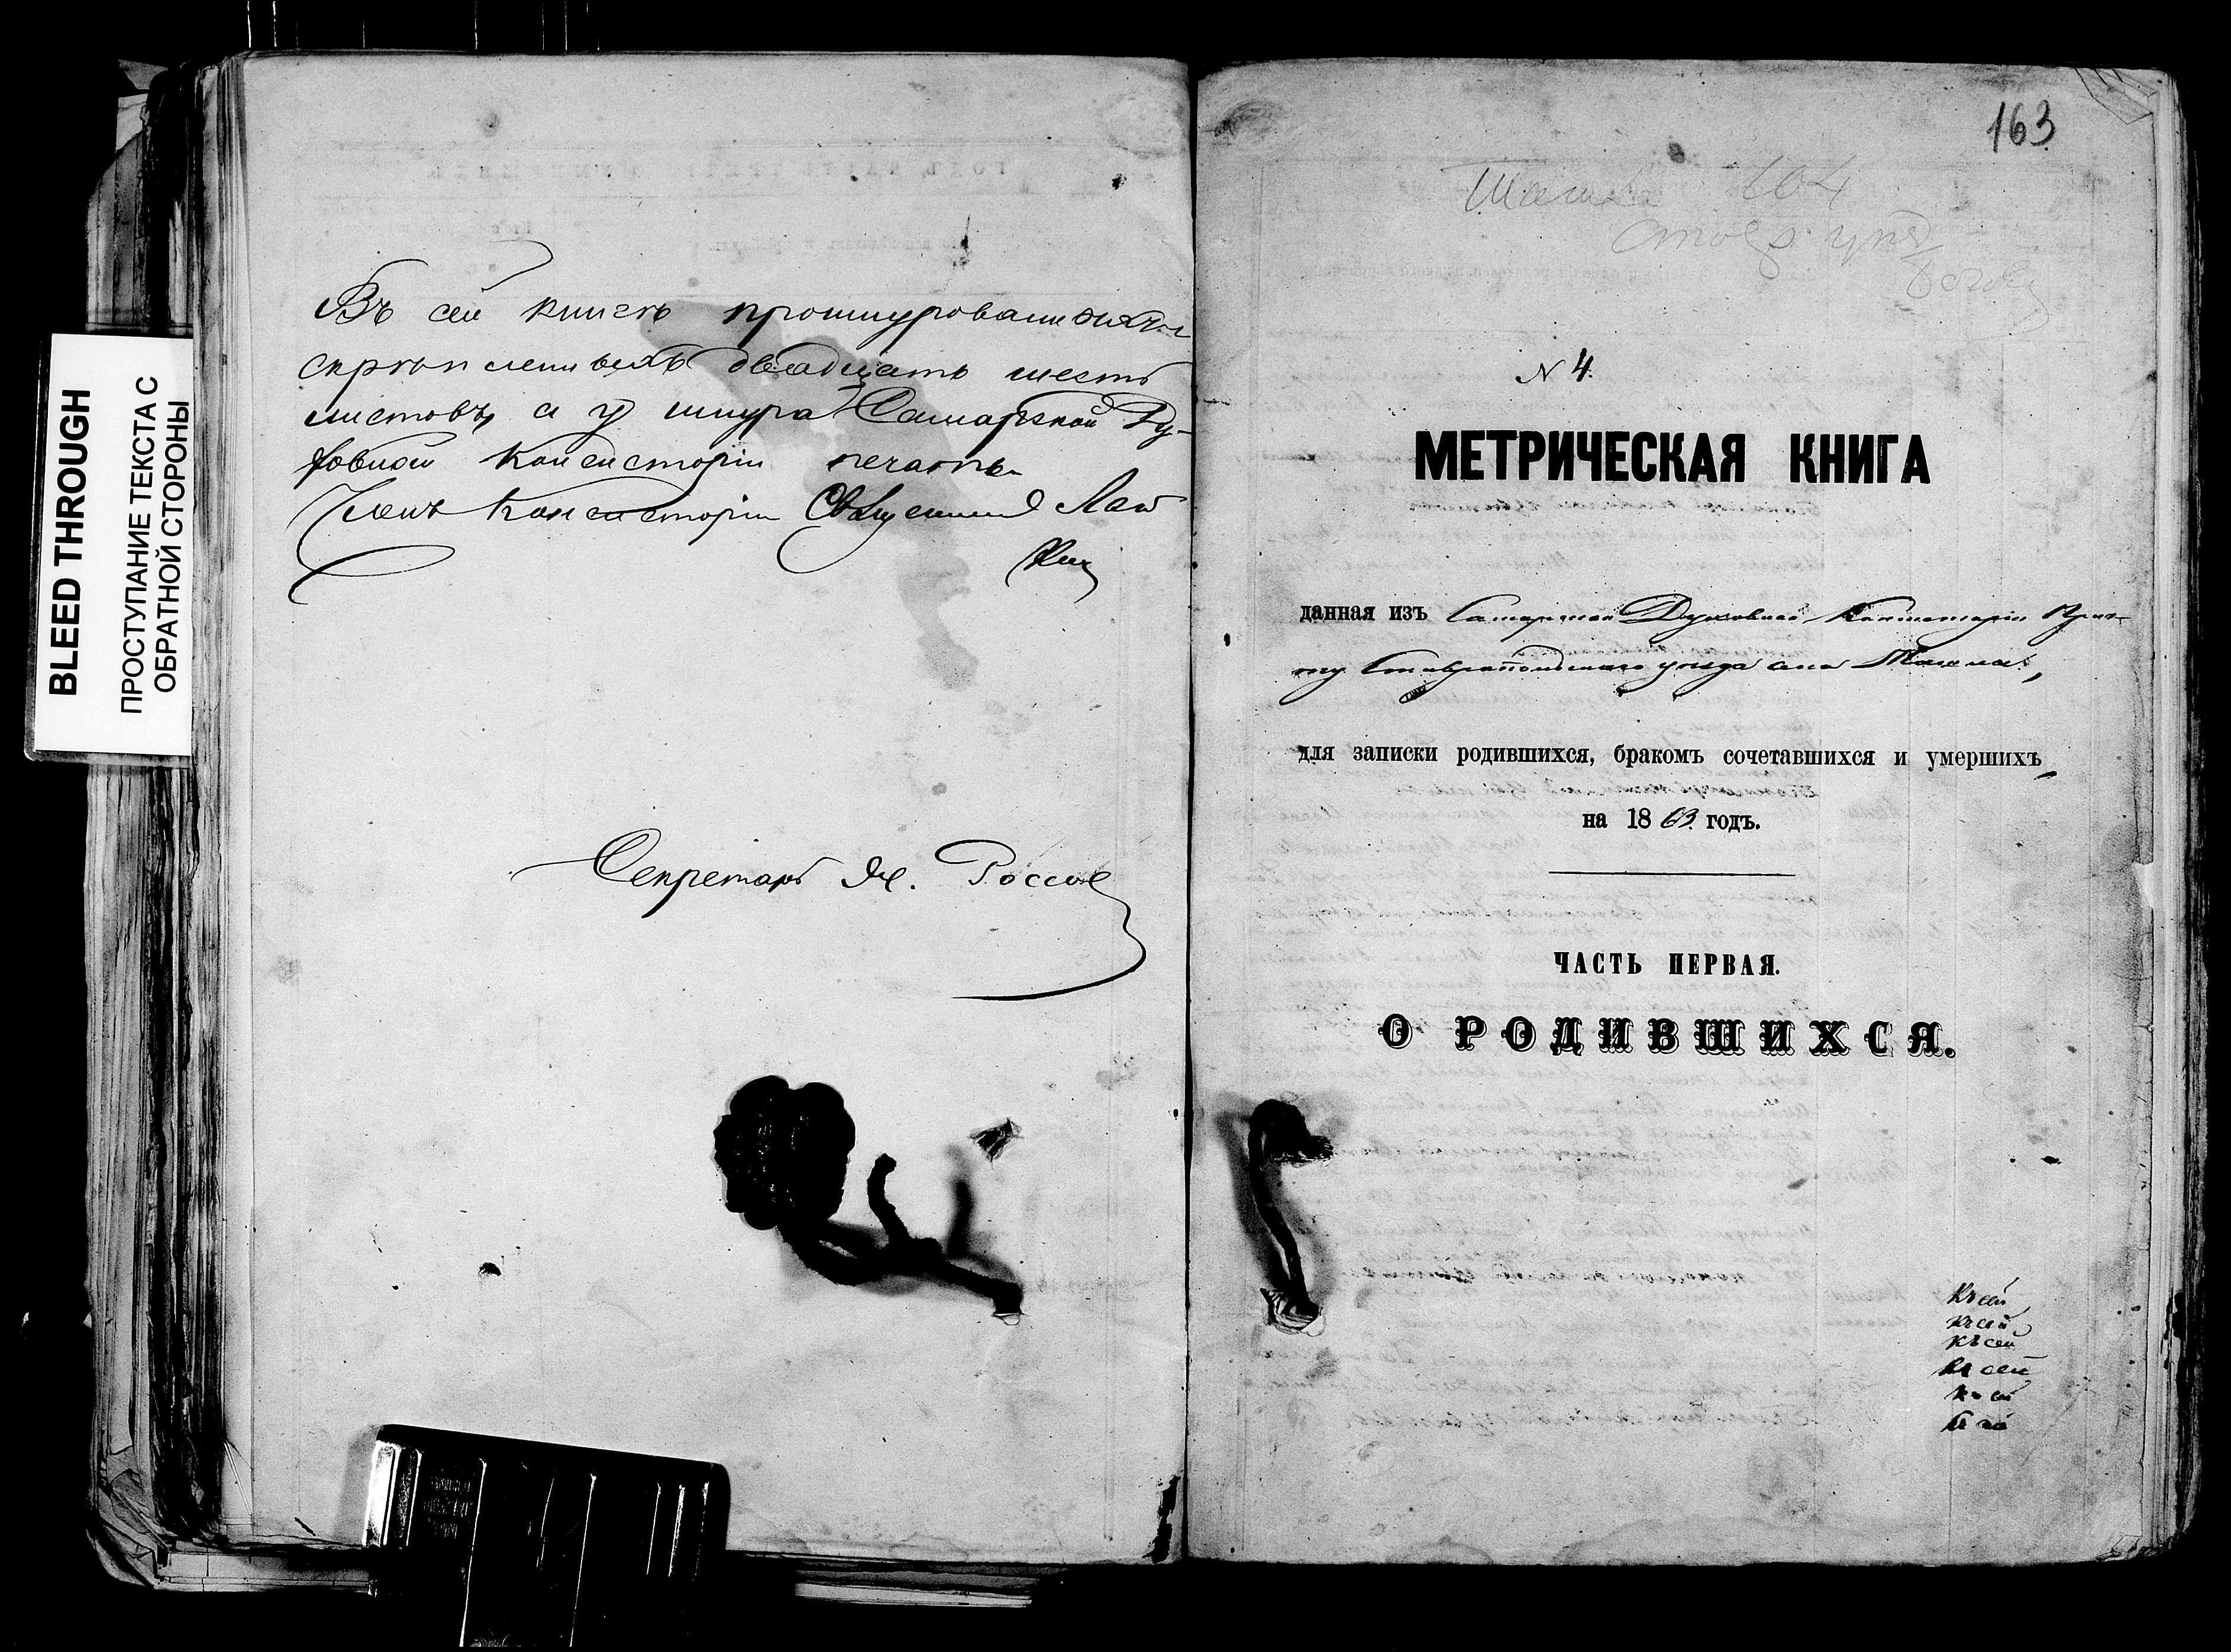 BLEED THROUGH
ПРОСТУПАНИЕ ТЕКСТА С
ОБРАТНОЙ СТОРОНЫ
Въ сей книгѣ прошнурованныхъ и
скрѣпленныхъ двадцать шесть
листовъ, а у шнура Самарской Ду-
ховной Консисторіи печать.
Членъ Консисторіи Священникъ
Секретарь
163
Ташла
Ставр уѣз
N 4.
МЕТРИЧЕСКАЯ КНИГА
данная изъ Самарской Духовной Консисторіи Прич-
ту Ставропольскаго уѣзда села
для записки родившихся, бракомъ сочетавшихся и умершихъ,
на 1863 годъ.
ЧАСТЬ ПЕРВАЯ.
О РОДИВШИХСЯ.
Къ сей
къ сей
къ сей
къ сей